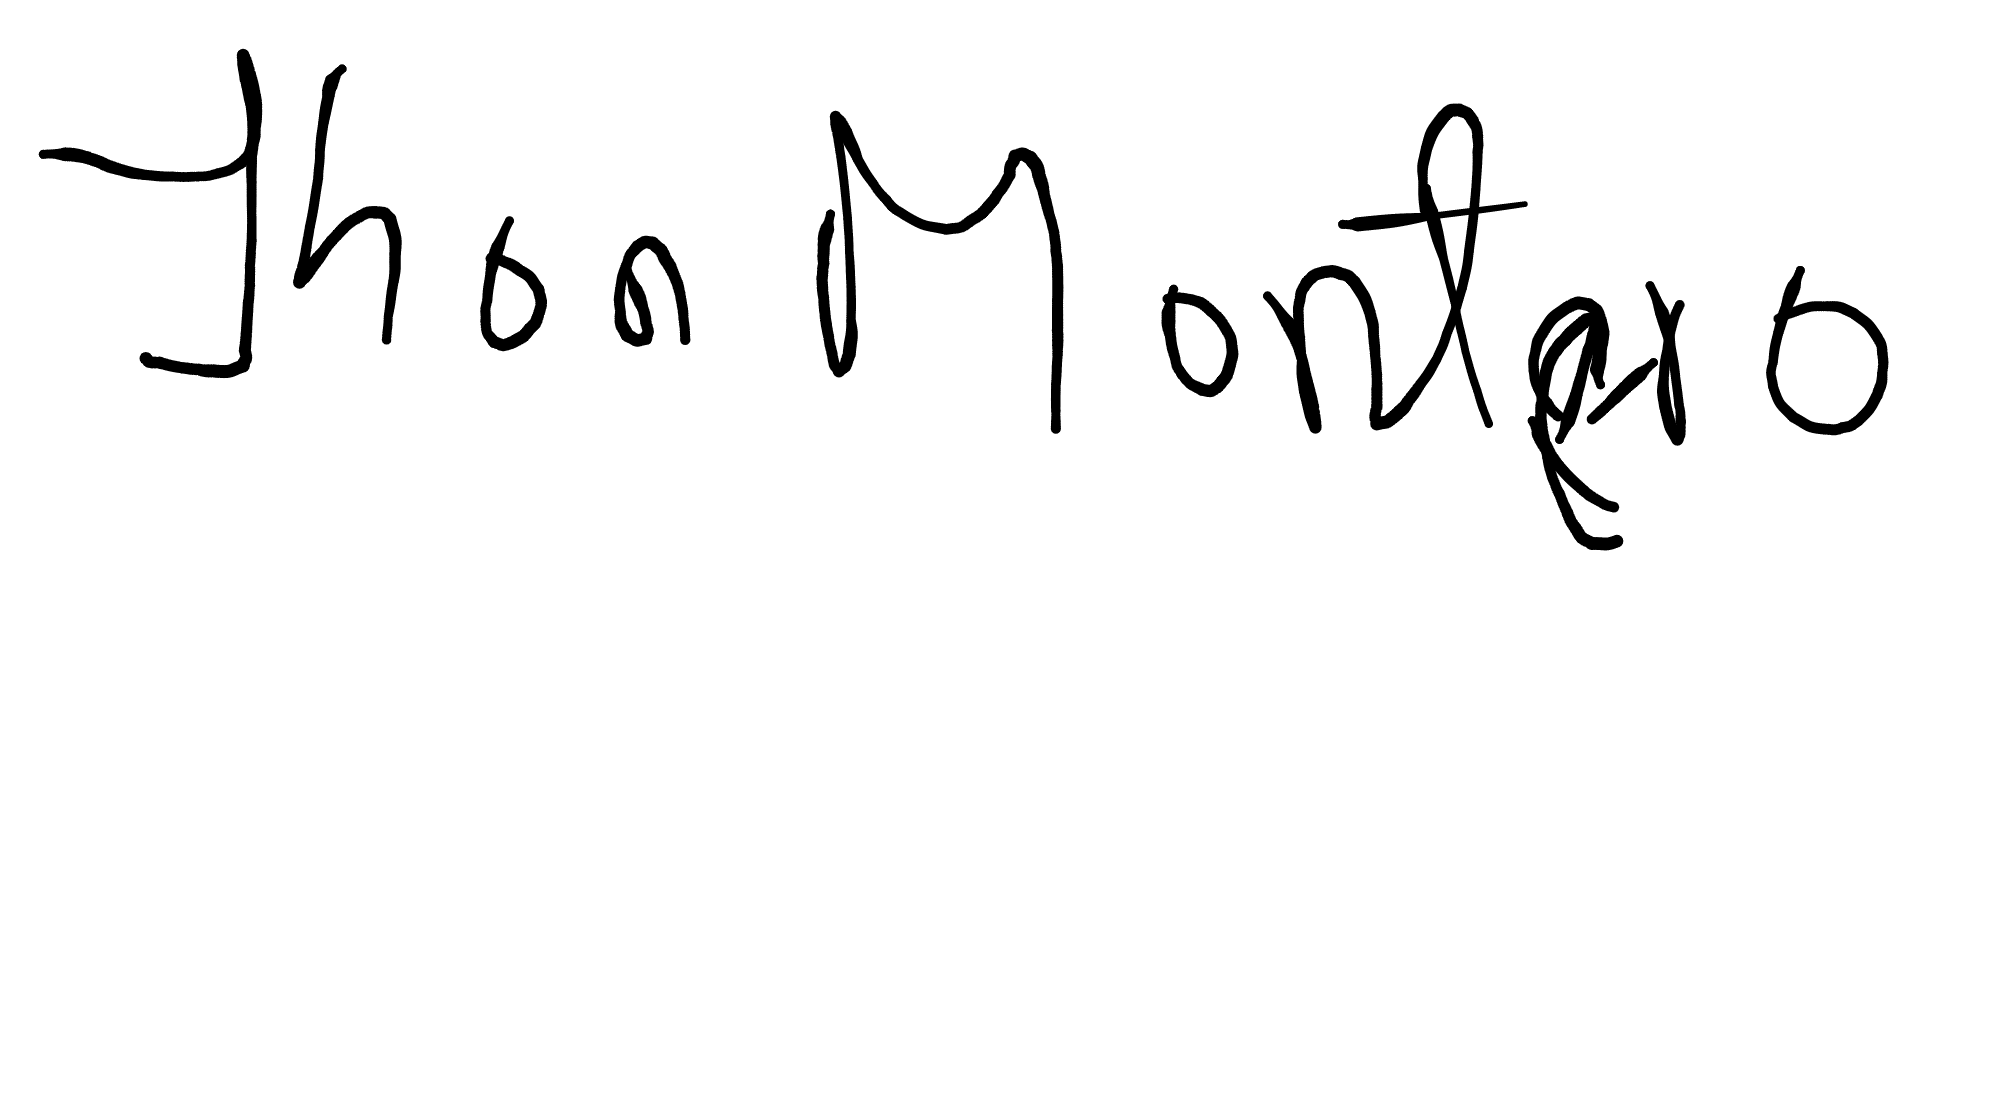 Jhon Montero